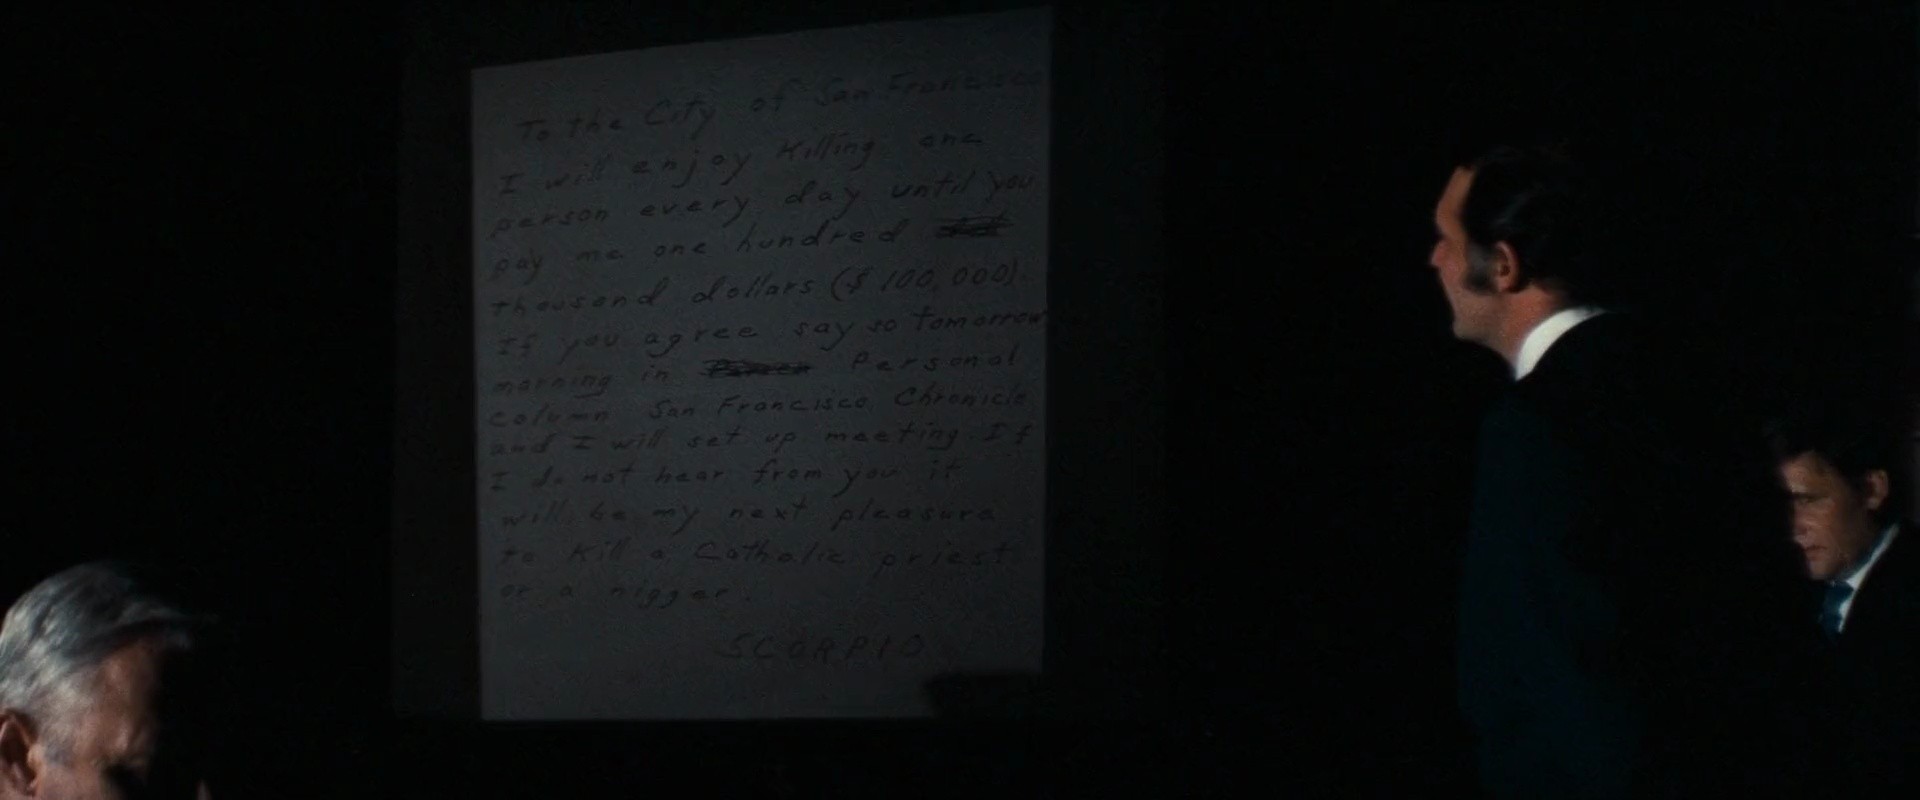 To the City of San Francisco
I will enjoy killing one
person every day until you
pay me one hundred
thousand dollars ($100,000)
If you agree say so tomorrow
morning in Personal
column San Francisco Chronicle
and I will set up meeting. If
I do not hear from you it
will be my next pleasure
to kill a Catholic priest
or a nigger.
SCORPIO